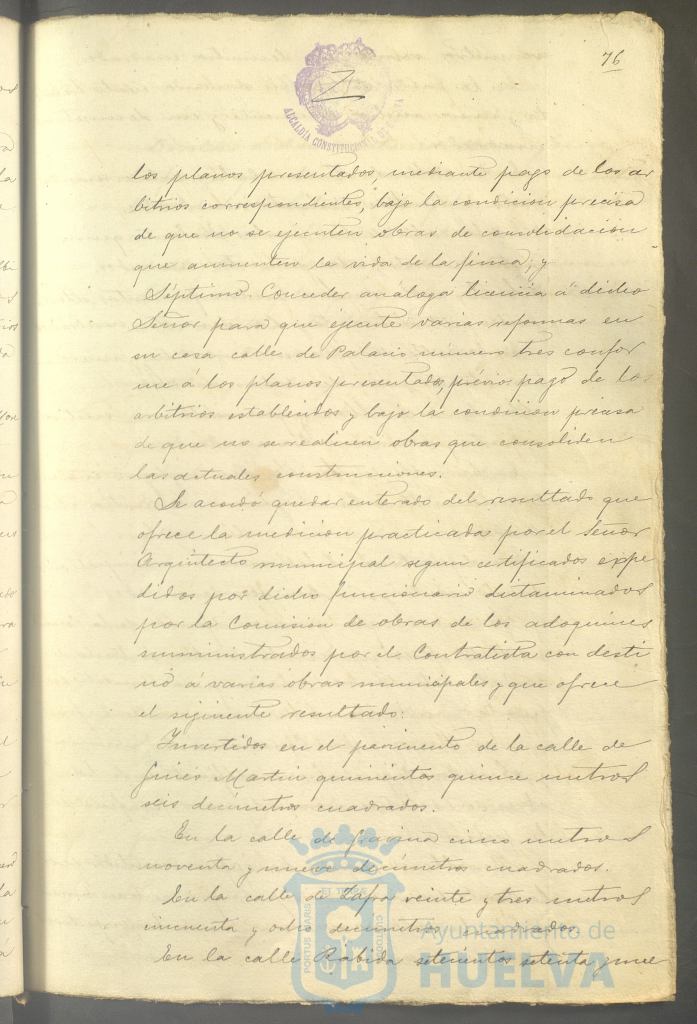 76
ALCALDIA CONSTITUCIONAL DE HUELVA
los planos presentados, mediante pago de los ar
bitrios correspondientes, bajo la condicion precisa
de que no se ejecuten obras de consolidacion
que aumenten la vida de la finca, y
Séptimo. Conceder análoga licencia á dicho
Señor para que ejecute varias reformas en
su casa calle de Palacio número tres confor
me á los planos presentados, prévio pago de los
arbitrios establecidos y bajo la condicion precisa
de que no se realicen obras que consoliden
las actuales construcciones.
Se acordó quedar enterado del resultado que
ofrece la medicion practicada por el Señor
Arquitecto municipal segun certificados expe
didos por dicho funcionario dictaminados
por la Comision de obras de los adoquines
suministrados por el Contratista con desti
no á varias obras municipales y que ofrece
el siguiente resultado:
Invertidos en el pavimento de la calle de
Ginés Martin quinientos quince metros
seis decímetros cuadrados.
En la calle de Gravina cinco metros
noventa y nueve decímetros cuadrados.
En la calle de Zafra veinte y tres metros
cincuenta y ocho decímetros cuadrados.
En la calle Rábida setecientos setenta y nue
PORTUS MARIS ET TERRE CUSTODIA
Ayuntamiento de
HUELVA